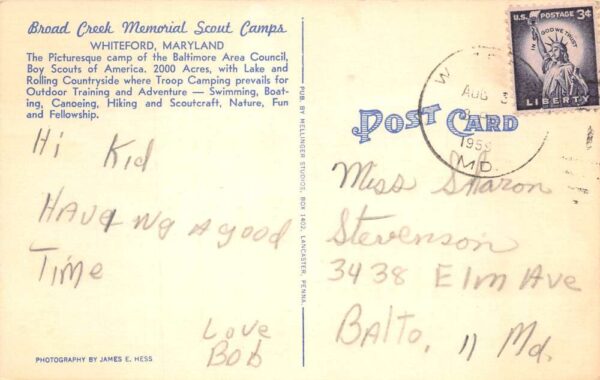 Broad Creek Memorial Scout Camps
WHITEFORD, MARYLAND
The Picturesque camp of the Baltimore Area Council,
Boy Scouts of America. 2000 Acres, with Lake and
Rolling Countryside where Troop Camping prevails for
Outdoor Training and Adventure — Swimming, Boat-
ing, Canoeing, Hiking and Scoutcraft, Nature, Fun
and Fellowship.
Hi Kid
HAVEING A good
Time
Love
Bob
PHOTOGRAPHY BY JAMES E. HESS
PUB. BY MELLINGER STUDIOS, BOX 1402, LANCASTER, PENNA.
POST CARD
U.S. POSTAGE 3¢
IN GOD WE TRUST
LIBERTY
W
AUG 3
MD.
Miss Sharon
Stevenson
3438 Elm Ave
Balto, 11 Md.